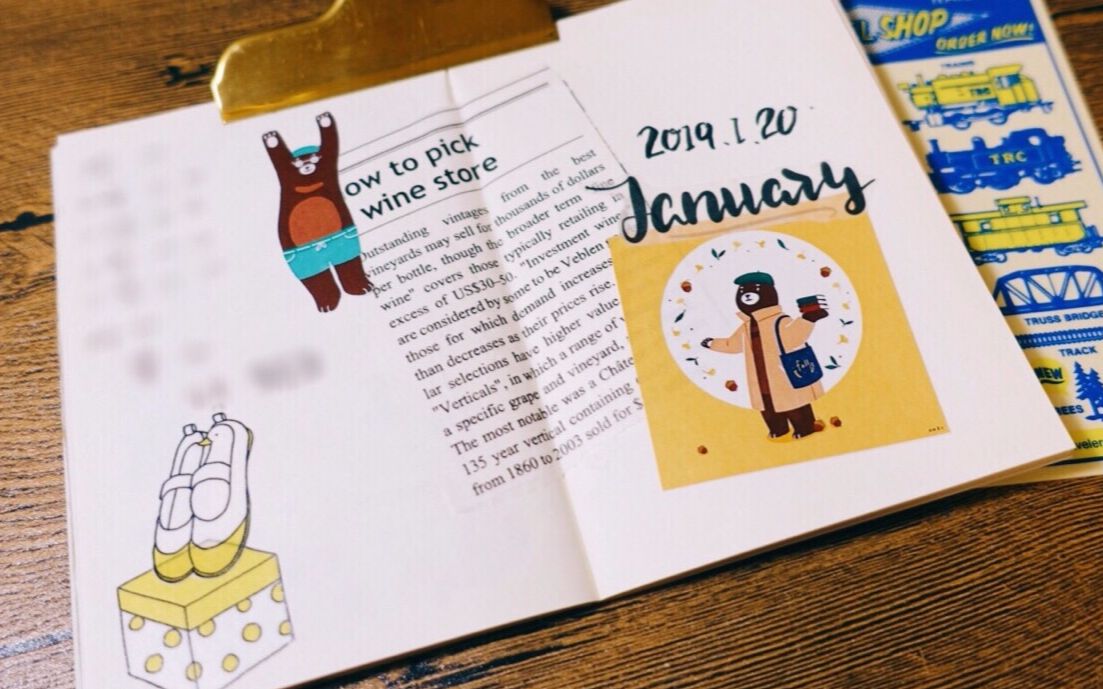 ow to pick
wine store
Outstanding vintages from the best
vineyards may sell for thousands of dollars
per bottle, though the broader term "fine
wine" covers those typically retailing in
excess of US$30-50. "Investment wine
are considered by some to be Veblen
those for which demand increases
than decreases as their prices rise.
lar selections have higher value
"Verticals", in which a range of v
a specific grape and vineyard,
The most notable was a Châte
135 year vertical containing
from 1860 to 2003 sold for $
2019.1.20
January
fall
L SHOP
ORDER NOW!
TRAINS
TRC
TRUSS BRIDGE
TRACK
NEW
REES
veler